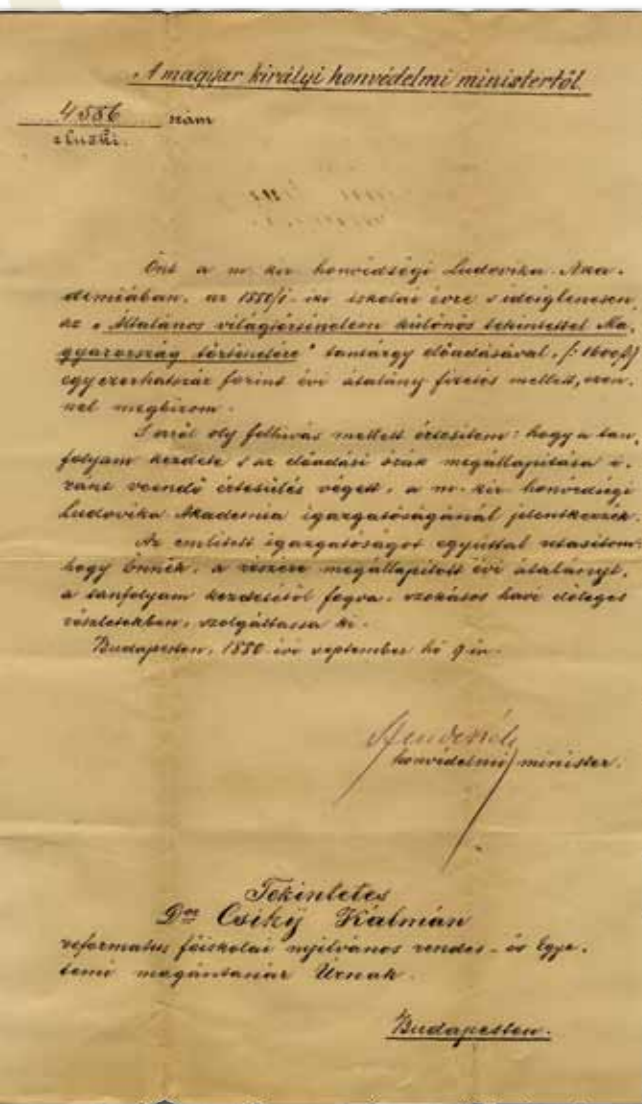 A magyar királyi honvédelmi ministertől.
4556 szám
elnöki.
Önt a m. kir. honvédségi Ludovika Aka-
démiában, az 1880/1-iki iskolai évre s ideiglenesen,
az „Általános világtörténelem különös tekintettel Ma-
gyarország történetére" tantárgy előadásával, /:1600 f/
egyezerhatszáz forint évi átalány fizetés mellett, ezen-
nel megbízom.
S erről oly felhívás mellett értesítem: hogy a tan-
folyam kezdete s az előadási órák megállapítása i-
ránt veendő értesülés végett, a m. kir. honvédségi
Ludovika Akadémia igazgatóságánál jelentkezzék.
Az említett igazgatóságot egyúttal utasítom:
hogy Önnek, a részére megállapított évi átalányt,
a tanfolyam kezdetétől fogva, szokásos havi előleges
részletekben, szolgáltassa ki.
Budapesten, 1880 évi september hó 9-én.
honvédelmi minister.
Tekintetes
Dor Csiky Kálmán
reformatus főiskolai nyilvános rendes- és Egye-
temi magántanár Úrnak.
Budapesten.